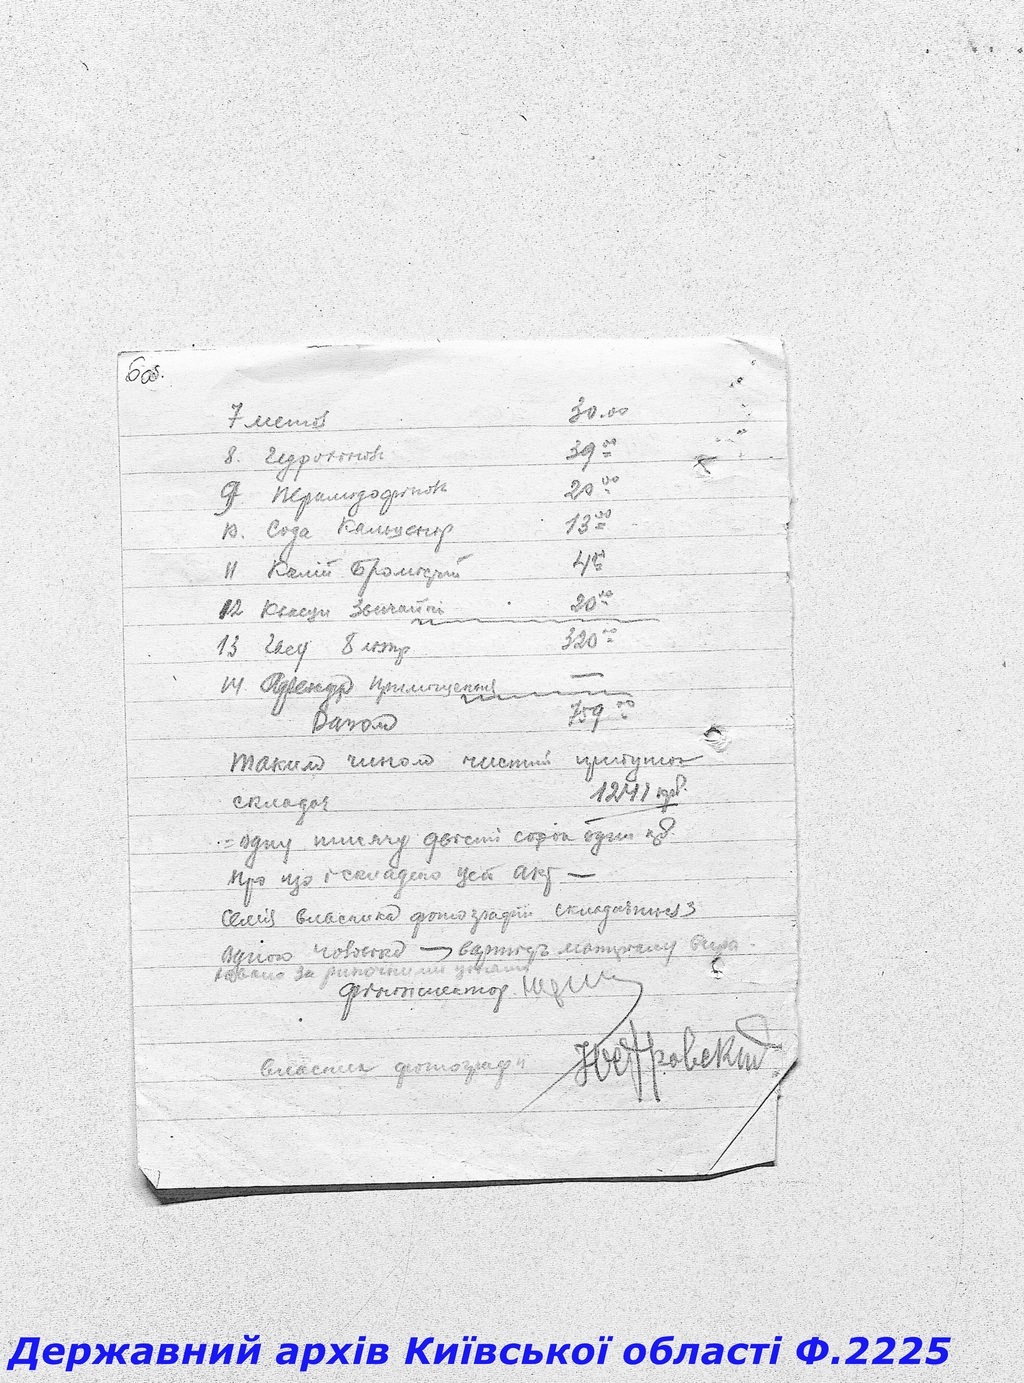 6 об.
7 метол 30.00
8. Гідрохінон 39 00
9 20 00
10. Сода Кальценор 13 00
11 Калій Бромистий 4 00
12 Квасци Звичайні 20 00
13 Газу 8 літр 320 00
14 Аренда Приміщення —
Разом 759 00
Таким чином чистий прибуток
складає 1241 крб.
= одну тисячу двісті сорок один крб.
Про що і складено цей акт —
Семія власника фотографії складається з
одного чоловіка — вартість матеріалу вира-
ховано за риночними цінами
Фінінспектор
власник фотографії
Державний архів Київської області Ф.2225